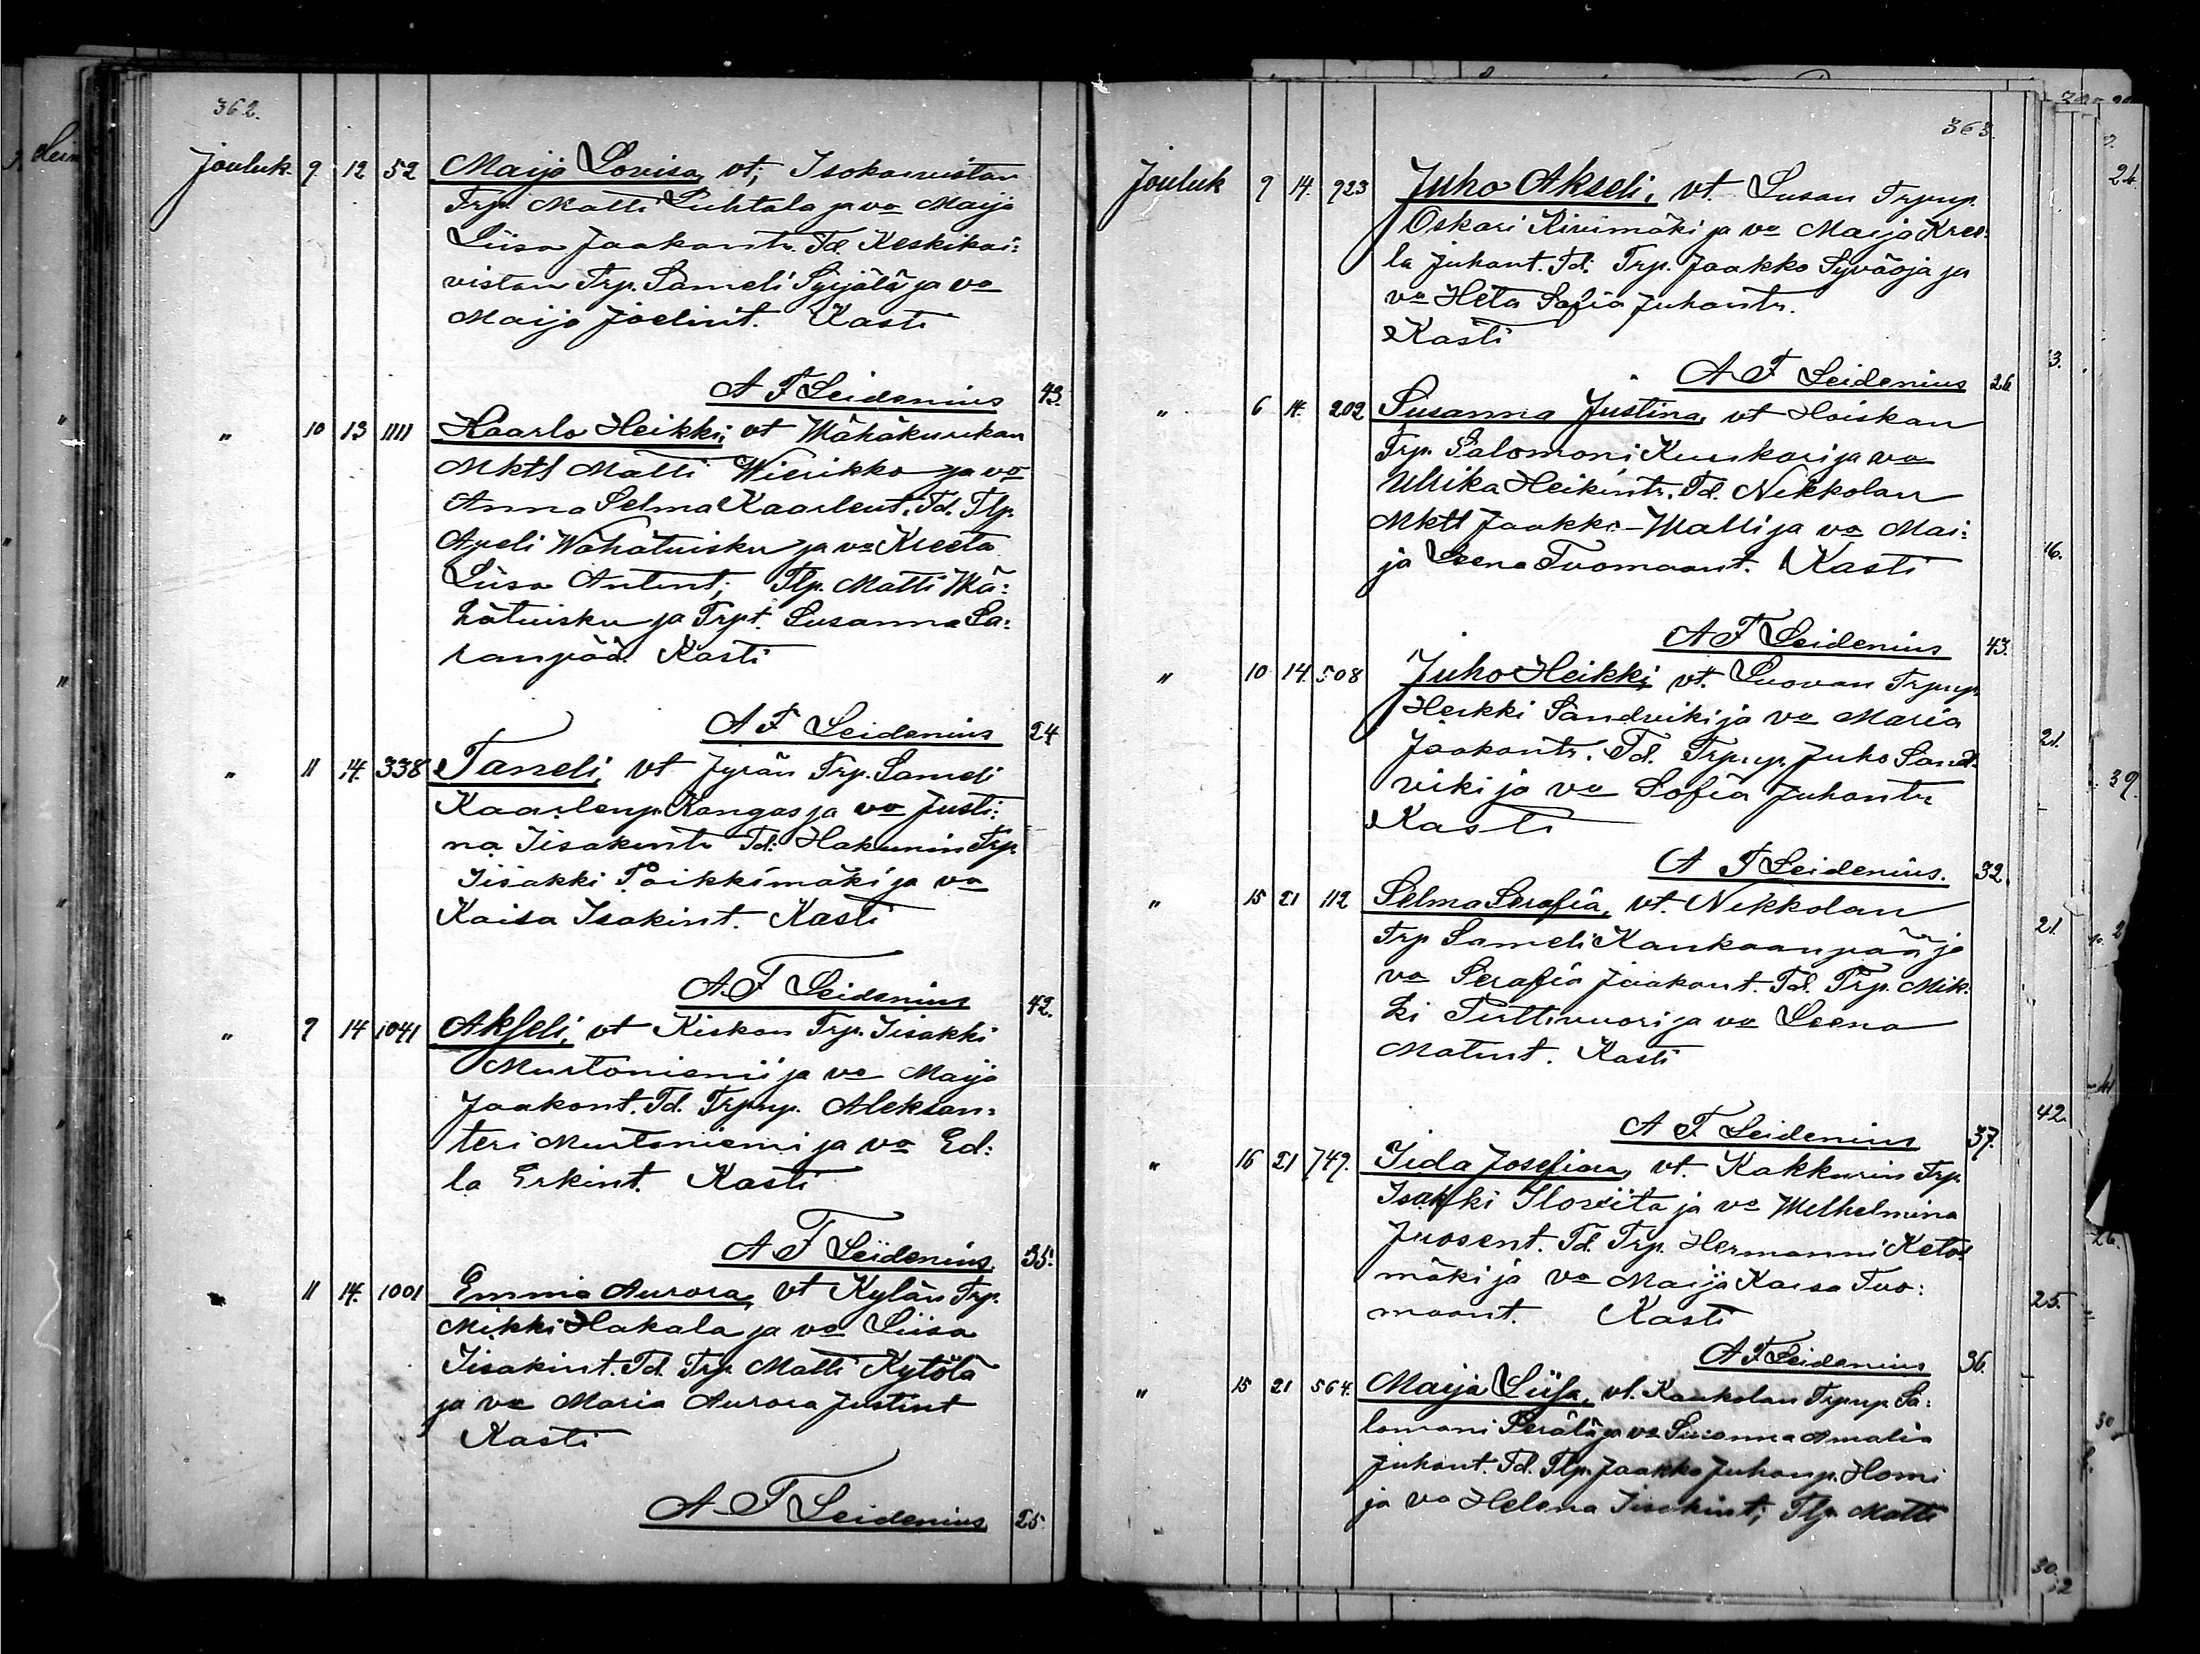 362.
Jouluk. 9 12 52 Maija Lovisa, vt; Isokoiviston
Trp. Matti Luhtala ja vo Maija
Liisa Jaakontr. Td. Keskikoi:
viston Trp. Sameli Syrjälä ja vo
Maija Joelint. Kasti
A F Leidenius 43.
" 10 13 1111 Kaarlo Heikki, vt Wähäkuurikan
Mktl Matti Wierikko ja vo
Anna Selma Kaarlent. Td. Tlp.
Apeli Wähätuisku ja vo Kreeta
Liisa Antint; Tlp. Matti Wä:
hätuisku ja Trpt. Susanna Sa:
ranpää. Kasti
A F Leidenius 24
" 11 14. 338 Taneli, vt Jyrän Trp. Sameli
Kaarlenp. Kangas ja vo Justi:
na Iisakintr Td: Hakunin Trp.
Iisakki Poikkimäki ja vo
Kaisa Isakint. Kasti
A. F Leidenius 42.
" 9 14 1041 Akseli, vt Kiskon Trp. Iisakki
Murtoniemi ja vo Maija
Jaakont. Td. Trpnp. Aleksan:
teri Murtoniemi ja vo Ed:
la Erkint. Kasti
A F Leidenius. 35.
" 11 14. 1001 Emmia Aurora, vt Kylän Trp.
Mikki Hakala ja vo Liisa
Iisakint. Td. Trp. Matti Kytölä
ja vo Maria Aurora Justint
Kasti
A F Leidenius 25.
363.
Jouluk 9 14. 923 Juho Akseli, vt. Lusan Trpnp.
Oskari Kivimäki ja vo Maija Kree:
la Juhant. Td. Trp. Jaakko Syväoja ja
vo Heta Sofia Juhontr.
Kasti
A F Leidenius 26
" 6 14. 202 Susanna Justina, vt Hoiskan
Trp. Salomoni Kuukari ja vo
Ulrika Heikintr. Td. Nikkolan
Mktl Jaakko-Walli ja vo Mai:
ja Leena Tuomaant. Kasti
A F Leidenius 43.
" 10 14. 508 Juho Heikki, vt. Luovan Trpnp
Heikki Sandviki ja vo Maria
Jaakontr. Td. Trpnp. Juho Sand:
viki ja vo Sofia Juhontr
Kasti
A F Leidenius. 32.
" 15 21 112 Selma Serafia, vt. Nikkolan
Trp Sameli Kankaanpää ja
vo Serafia Jaakont. Td. Trp. Mik:
ki Perttivuori ja vo Leena
Matint. Kasti
A F Leidenius 37.
" 16 21 749. Iida Josefiina, vt. Kakkurin Trp.
Isakki Iloviita ja vo Wilhelmina
Juosent. Td. Trp. Hermanni Keto:
mäki ja vo Maija Kaisa Tuo:
maant. Kasti
A F Leidenius 36.
" 15 21 564. Maija Liisa, vt. Kaukolan Trpnp. Sa:
lomoni Perälä ja vo Susanna Amalia
Juhont. Td. Tlp. Jaakko Juhonp. Homi
ja vo Helena Iisakint; Tlp Matti